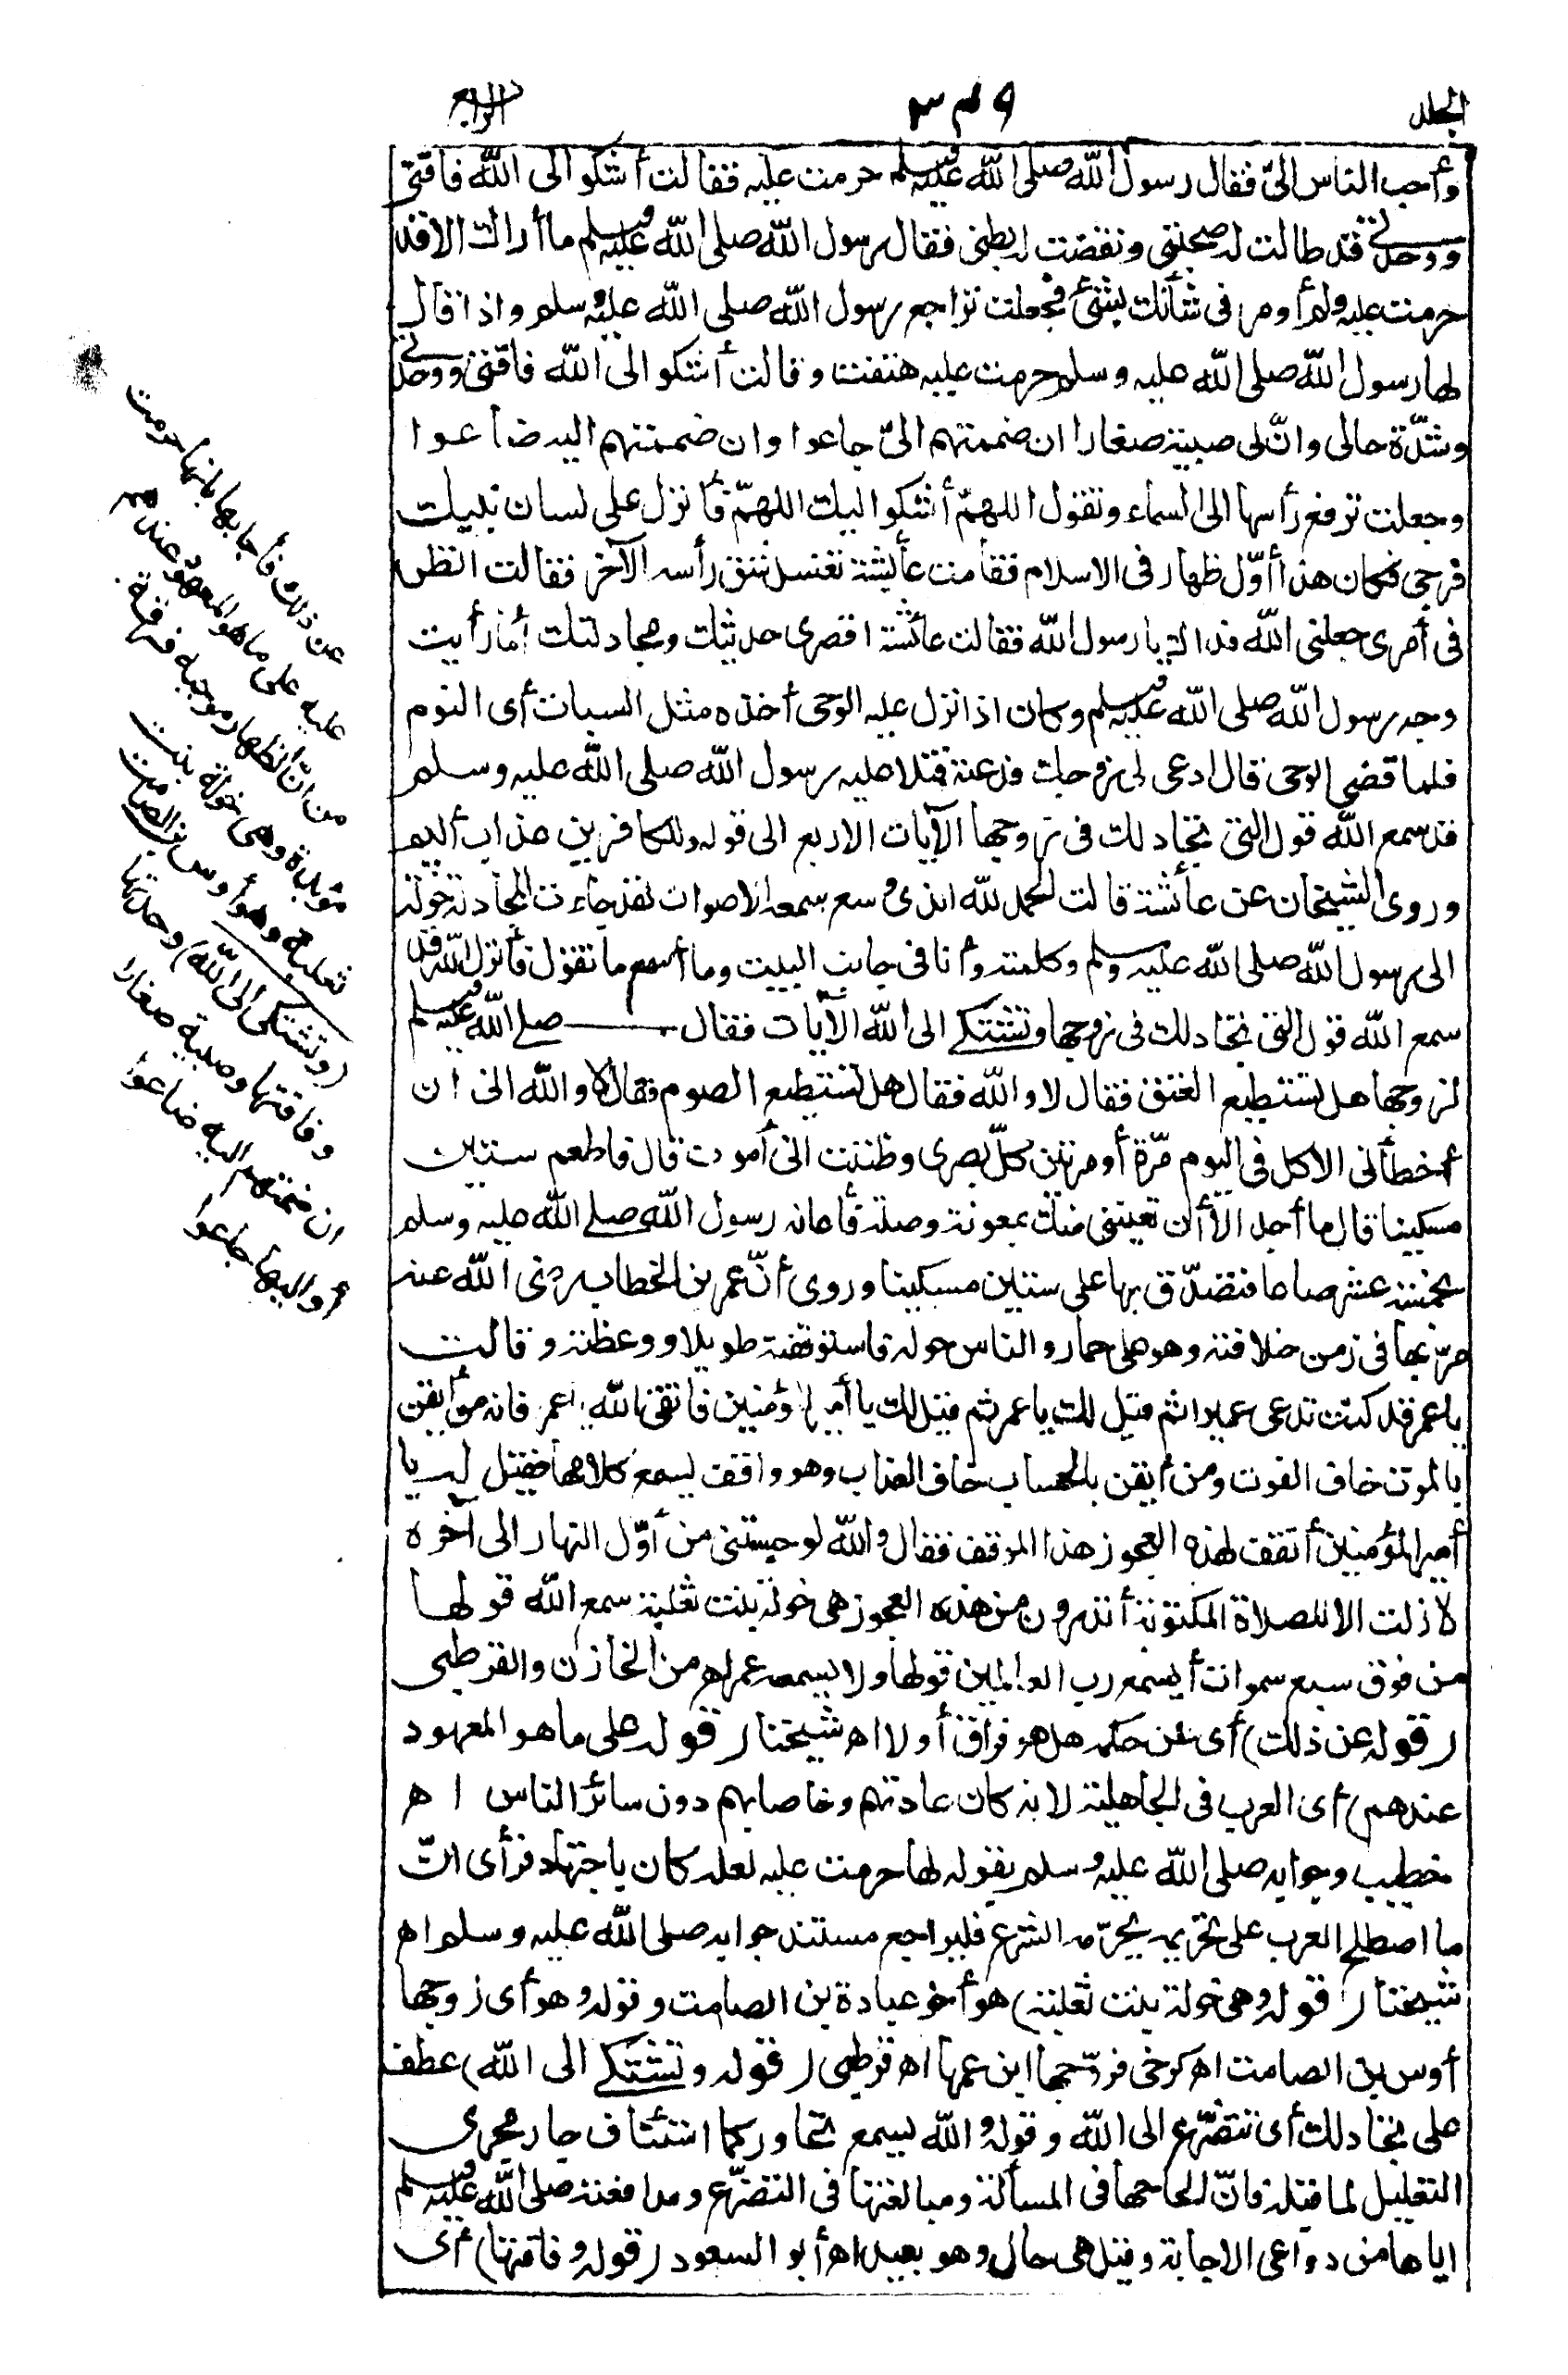 الجلد
٣٤٩
الرابع
وأحب الناس الىّ فقال رسول الله صلى الله عليه وسلم حرمت عليه فقالت أشكو الى الله فاقتى
ووحدتى قد طالت له صحبتى ونفضت له بطنى فقال رسول الله صلى الله عليه وسلم ما أراك الا قد
حرمت عليه ولم أومر فى شأنك بشئ فجعلت تراجع رسول الله صلى الله عليه وسلم واذا قال
لها رسول الله صلى الله عليه وسلم حرمت عليه هتفت وقالت أشكو الى الله فاقتى ووحدتى
وشدّة حالى وانّ لى صبية صغارا ان ضممتهم الىّ جاعوا وان ضممتهم اليه ضاعوا
وجعلت ترفع رأسها الى السماء وتقول اللهمّ أشكو اليك اللهمّ فأنزل على لسان نبيك
فرجى فكان هذا أوّل ظهار فى الاسلام فقامت عائشة تغسل شق رأسه الآخر فقالت انظر
فى أمرى جعلنى الله فداك يا رسول الله فقالت عائشة اقصرى حديثك ومجادلتك أما رأيت
وجه رسول الله صلى الله عليه وسلم وكان اذا نزل عليه الوحى أخذه مثل السبات أى النوم
فلما قضى الوحى قال ادعى لى زوجك فدعته فتلا عليه رسول الله صلى الله عليه وسلم
قد سمع الله قول التى تجادلك فى زوجها الآيات الاربع الى قوله وللكافرين عذاب أليم
وروى الشيخان عن عائشة قالت الحمد لله الذى وسع سمعه الاصوات لقد جاءت المجادلة خولة
الى رسول الله صلى الله عليه وسلم وكلمته وأنا فى جانب البيت وما أسمع ما تقول فأنزل الله قد
سمع الله قول التى تجادلك فى زوجها وتشتكى الى الله الآيات فقال صلى الله عليه وسلم
لزوجها هل تستطيع العتق فقال لا والله فقال هل تستطيع الصوم فقال لا والله انى ان
أخطأنى الاكل فى اليوم مرّة أو مرتين كلّ بصرى وظننت انى أموت قال فاطعم ستين
مسكينا قال ما أجد الا أن تعيننى منك بمعونة وصلة فأعانه رسول الله صلى الله عليه وسلم
بخمسة عشر صاعا فتصدّق بها على ستين مسكينا وروى أنّ عمر بن الخطاب رضى الله عنه
مرّ بها فى زمن خلافته وهو على حمار والناس حوله فاستوقفته طويلا ووعظته وقالت
يا عمر قد كنت تدعى عميرا ثم قيل لك يا عمر ثم قيل لك يا أمير المؤمنين فاتقى الله يا عمر فانه من أيقن
بالموت خاف الفوت ومن أيقن بالحساب خاف العذاب وهو واقف يسمع كلامها فقيل له يا
أمير المؤمنين أتقف لهذه العجوز هذا الموقف فقال والله لو حبستنى من أوّل النهار الى آخره
لا زلت الا للصلاة المكتوبة أتدرون من هذه العجوز هى خولة بنت ثعلبة سمع الله قولها
من فوق سبع سموات أيسمع رب العالمين قولها ولا يسمعه عمر اهـ من الخازن والقرطبى
(قوله عن ذلك) أى عن حكمه هل هو فراق أو لا اهـ شيخنا (قوله على ما هو المعهود
عندهم) أى العرب فى الجاهلية لانه كان عادتهم وخاصا بهم دون سائر الناس اهـ
خطيب وجوابه صلى الله عليه وسلم بقوله لها حرمت عليه لعله كان باجتهاد فرأى انّ
ما اصطلح العرب على تحريمه يحرّمه الشرع فليراجع مستند جوابه صلى الله عليه وسلم اهـ
شيخنا (قوله وهى خولة بنت ثعلبة) هو أخو عبادة بن الصامت وقوله وهو أى زوجها
أوس بن الصامت اهـ كرخى فزوّجها ابن عمها اهـ قرطبى (قوله وتشتكى الى الله) عطف
على تجادلك أى تتضرّع الى الله وقوله والله يسمع تحاوركما استئناف جار مجرى
التعليل لما قبله فانّ الحاحها فى المسألة ومبالغتها فى التضرّع ومدافعته صلى الله عليه وسلم
اياها من دواعى الاجابة وقيل هى حال وهو بعيد اهـ أبو السعود (قوله وفاقتها) أى
عن ذلك فأجابها بانها حرمت
عليه على ما هو المعهود عندهم
من أنّ الظهار موجبه فرقة
مؤبدة وهى خولة بنت
ثعلبة وهو أوس بن الصامت
(وتشتكى الى الله) وحدتها
وفاقتها وصبية صغارا
ان ضمتهم اليه ضاعوا
أو اليها جاعوا